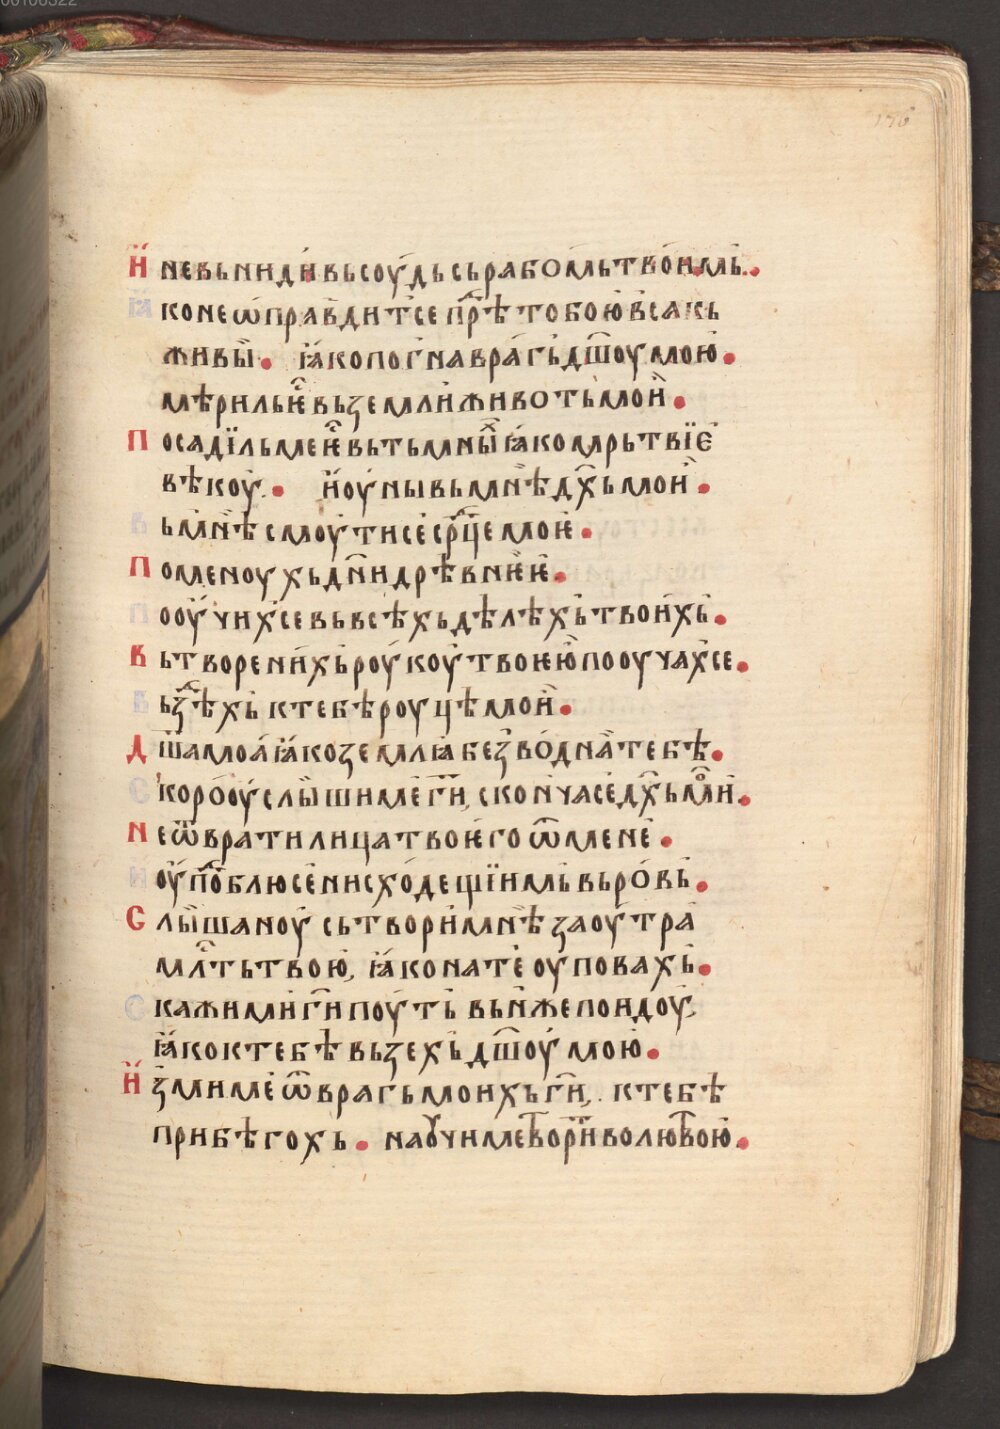 00100322
176
И҆ невьниди́ вьсоу́дь сьрабо́мь твои́мь.
ꙗ҆ко не ѡ҆правди́тсе прⷣѣ тобою҆ всакь
живы҆. ꙗ҆ко погна вра́гь дш҃оу мою҆.
мѣриль кⷭ҇ вьземли҆ животь мои҆.
Посади́ль ме кⷭ҇ вьтьмныⷯ ꙗ҆ко мрьтвїе҆
вѣкоу҆. и҆оу́ны вьмнѣ дх҃ь мои҆.
Вьмнѣ смоу́тисе срⷣце мок҆.
Поменоухь дн҃и дрѣвнкк҆.
Пооу́чихсе вьвсѣхь дѣлѣхь твои҆хь.
Вьтворени҆хь роу́коу твокю҆ пооучахсе.
Вьзⷣѣхь ктебѣ роуцѣ мои҆.
Дш҃а моа҆ ꙗ҆ко землꙗ безво́дна тебѣ.
Ско́ро оу́слы́ши ме гⷭ҇и, сконча се дх҃ь мⷪ҇и.
Не ѿврати лица твок҆го ѿмене҆.
И҆ оу́пⷣоблюсе нисхо́дещїимь вьро́вь.
Слы́шаноу҆ сьтвори҆ мнѣ заоу́тра
млⷭ҇ть твою҆, ꙗ҆ко на те҆ оуповахь.
Скажи ми гⷭ҇и поу́ть вьн҆же поидоу҆,
ꙗ҆ко ктебѣ вьзехь дш҃оу́ мою.
И҆зми ме҆ ѿврагь моихъ гⷭ҇и, ктебѣ
прибѣгохь. наоучи метвори҆ти волютвою҆.